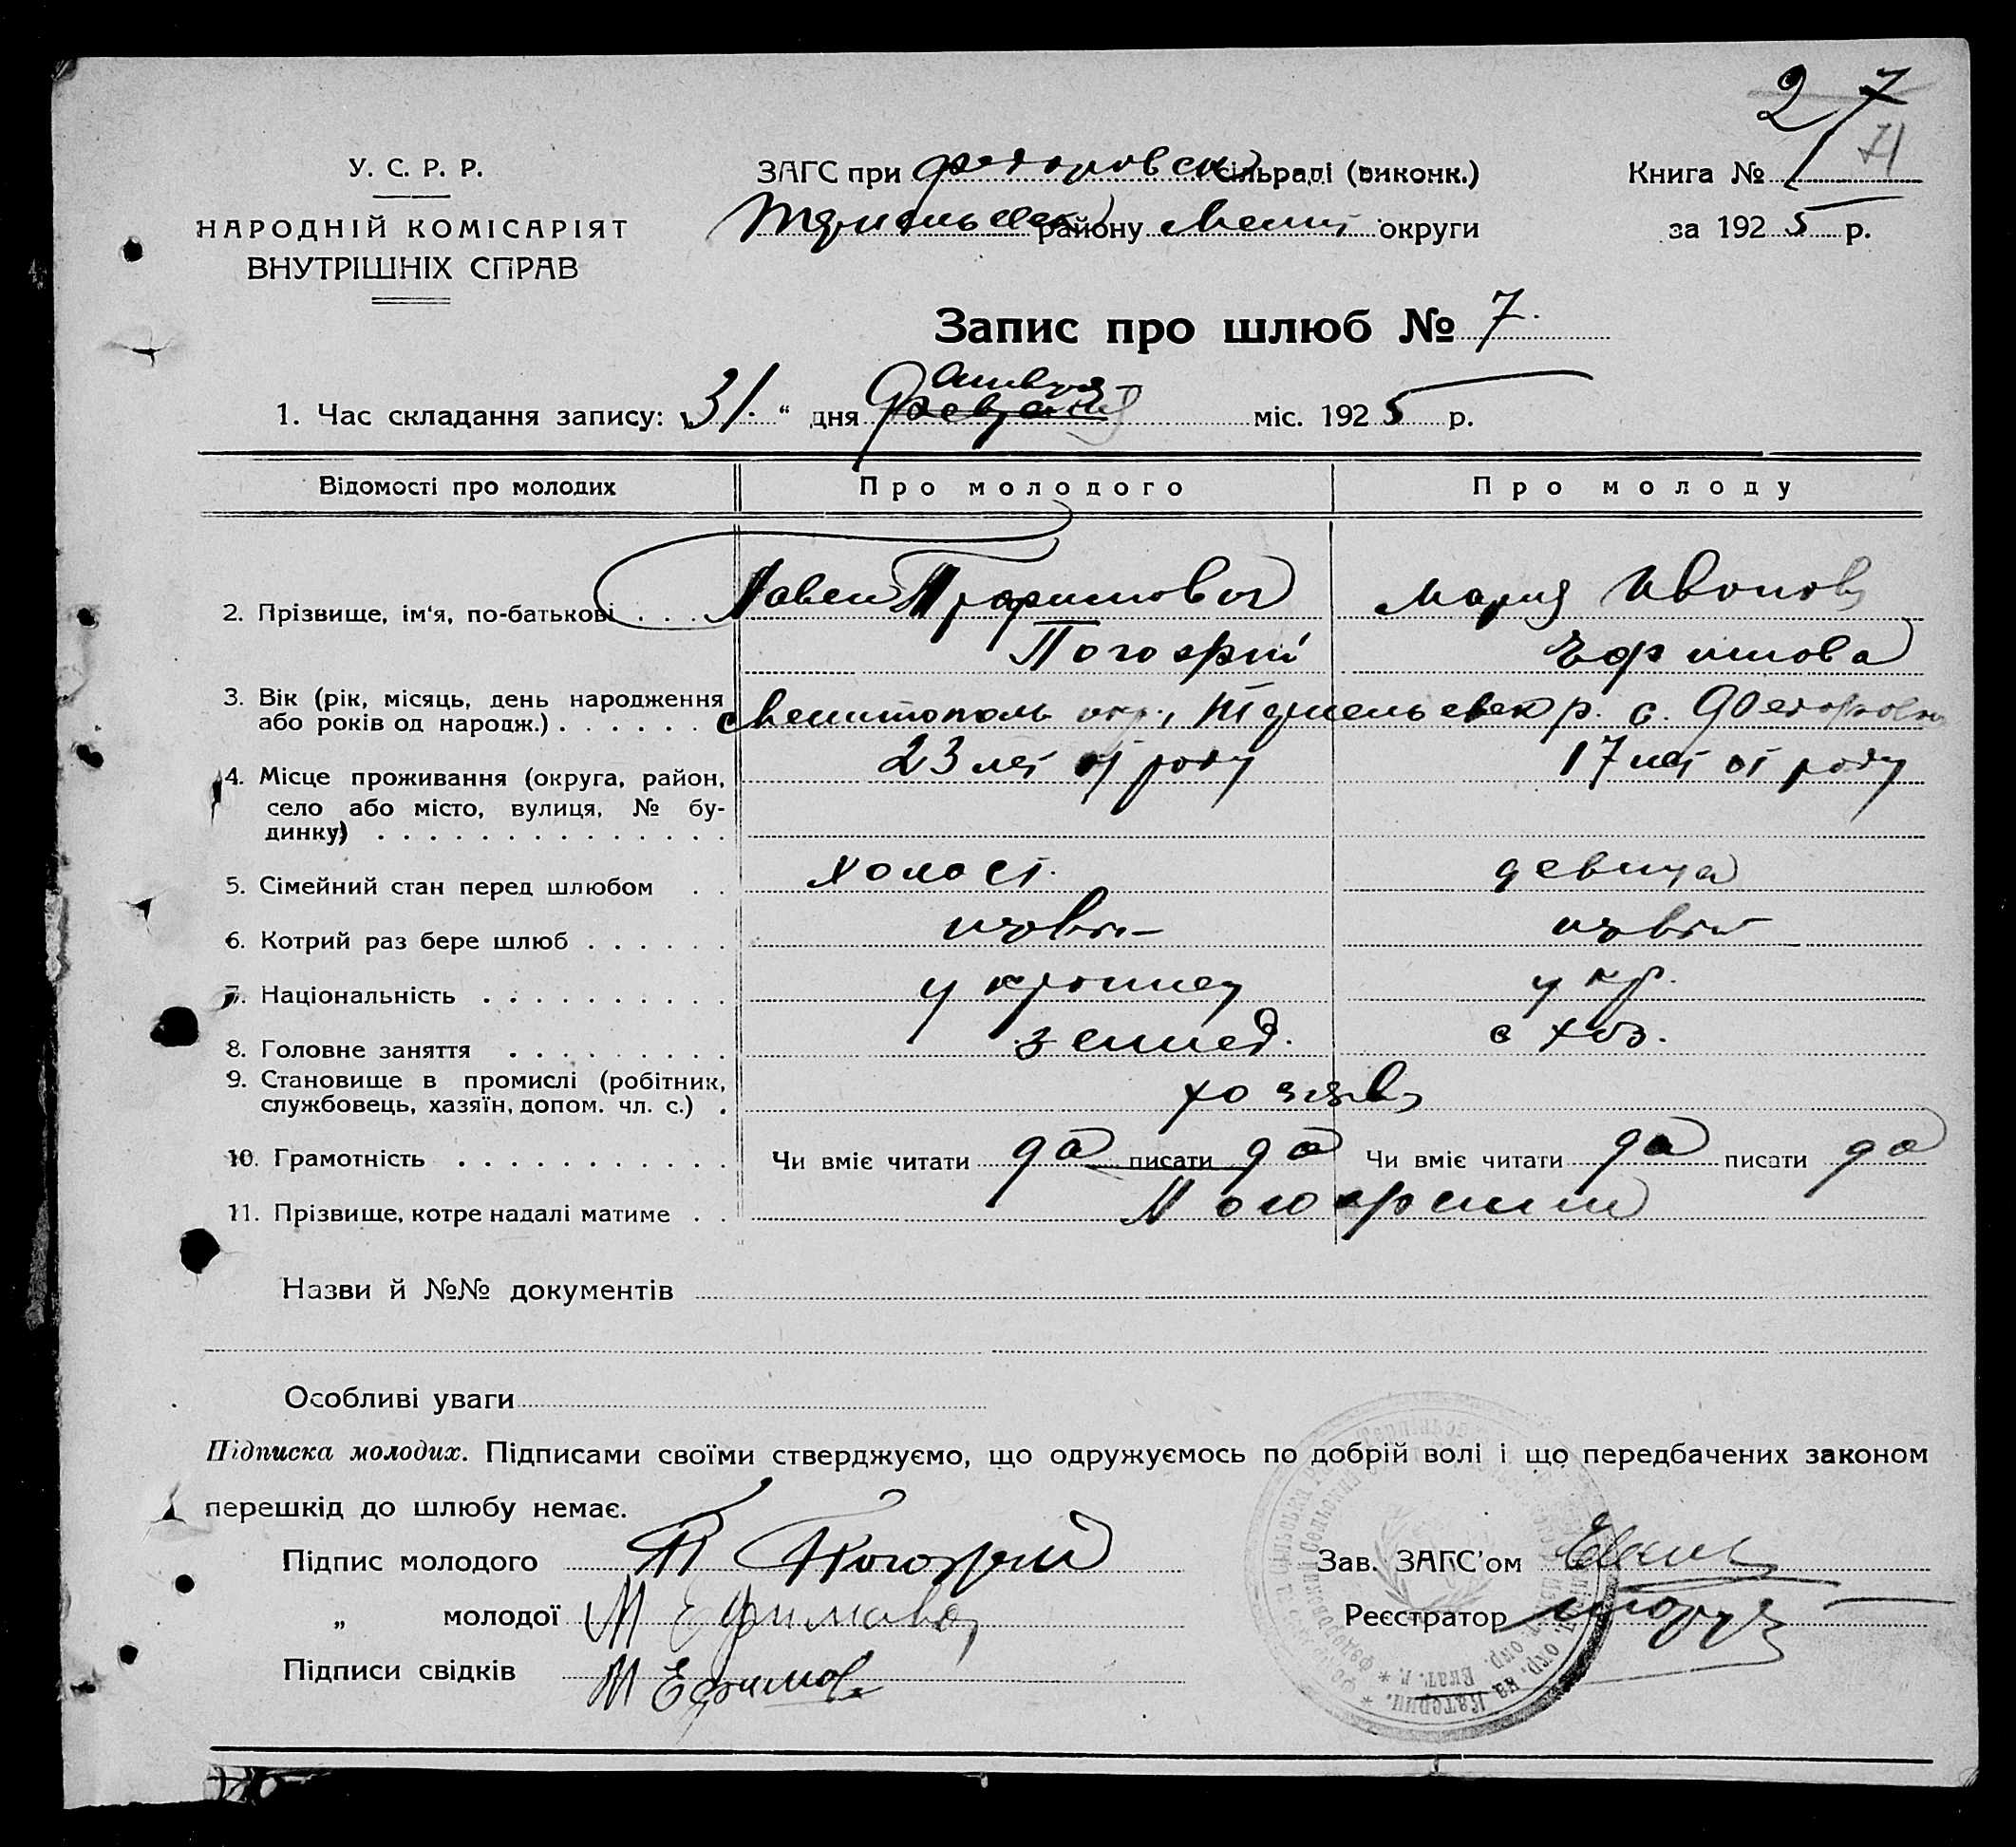 2/7
71
У. С. Р. Р.
НАРОДНІЙ КОМІСАРІЯТ
ВНУТРІШНІХ СПРАВ
ЗАГС при Федоровск сільраді (виконк.)
району Мелит округи
Книга №
за 1925 р.
Запис про шлюб № 7.
января
1. Час складання запису: „31“ дня февраля міс. 1925 р.
Відомості про молодих Про молодого Про молоду
2. Прізвище, ім‘я, по-батькові . . . Павел Трофимович Мария Ивонов
Погорѣлій Ефимова
3. Вік (рік, місяць, день народження
або років од народж.) . . . . . . Мелитополь окр., р. с. Федоровка
23 лет от роду 17 лет от роду
4. Місце проживання (округа, район,
село або місто, вулиця, № бу-
динку) . . . . . . . . . . . . . .
5. Сімейний стан перед шлюбом . . холост. девица
6. Котрий раз бере шлюб . . . . . . первы первы
7. Національність . . . . . . . . . . украинец укр.
8. Головне заняття . . . . . . . . . земled. с хоз.
9. Становище в промислі (робітник,
службовець, хазяїн, допом. чл. с.) . хозяева
10. Грамотність . . . . . . . . . . . Чи вміє читати да писати да Чи вміє читати да писати да
11. Прізвище, котре надалі матиме . .
Назви й №№ документів
Особливі уваги
Підписка молодих. Підписами своїми стверджуємо, що одружуємось по добрій волі і що передбачених законом
перешкід до шлюбу немає.
Підпис молодого П Погорелй
„ молодої М Ефимова
Підписи свідків М Ефимов
Зав. ЗАГС’ом
Реєстратор